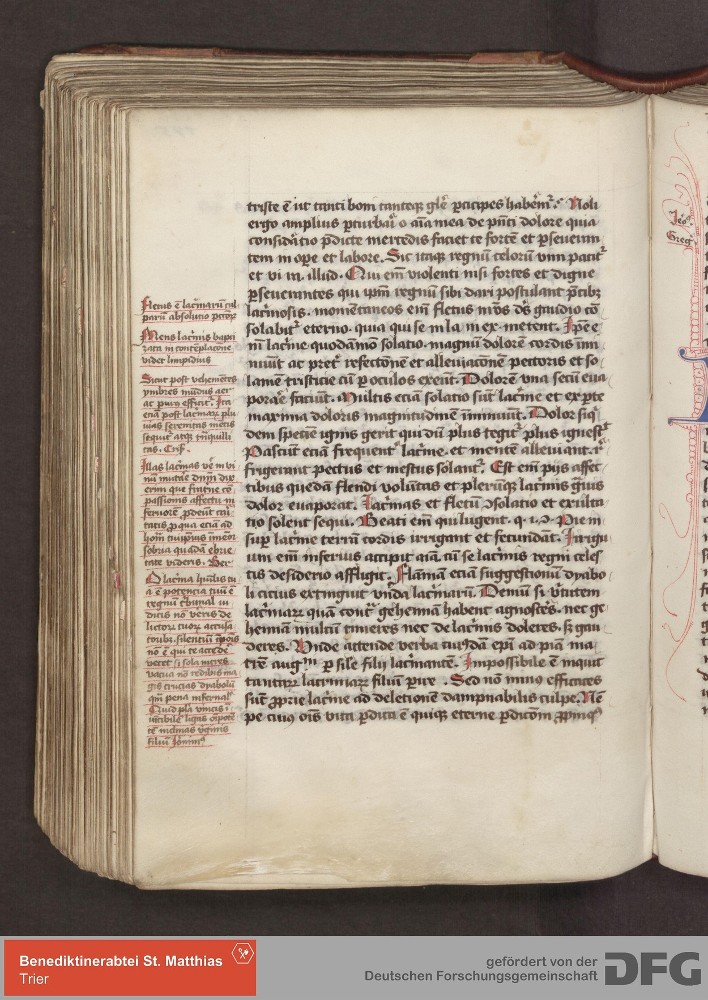 triste ē ut tanti boni tanteqꝫ glē pͥcipes habēmꝰ. Noli
ergo amplius ꝑturbaͥ o aīa mea de pn̄ti dolore quia
consid̄atio p̄dicte mercedis faciet te fortē et ꝑseueran
tem in oꝑe et labore. Sic itaqꝫ regnū celorū vim patitͬ
et vi illud. Qui em̄ violenti nisi fortes et digne
ꝑseuerantes qui ip̄m regnū sibi dari postulant pͥcibꝫ
lac̄mosis. momētaneos em̄ fletus nr̄os dn̄s gaudio cō
solabitͬ eterno. quia qui se m la in ex metent. Ip̄e
lac̄me quodāmo solatio. magnū dolorē cordis
ac pͥter refectōnē et alleuiacōnē pectoris et so
lamē tristicie cū ꝑ oculos exeūt. Dolorē vna secū eua
porāe faciūt. Multis etiā solatio sūt lac̄me et ex ꝑte
maxima doloris magnitudinē īminuūt. Dolor siqͥ
dem speciē ignis gerit qui dū plus tegitͬ plus ignescͭ
Pascunt etiā frequentͬ lac̄me. et mentē alleuiant. rͤ
frigerant pectus et mestus solantͬ. Est em̄ pijs affec
tibus quedā flendi volūtas et plerūqꝫ lac̄mis gͣuis
dolor euaporat. Lac̄mas et fletū ↄsolatio et exulta
tio solent sequi. Beati em̄ qui lugent. q. i. ↄ. Pie
suꝑ lac̄me terrā cordis irrigant et fecundat. Irrigu
um em̄ inferius accipit aīa cū se lac̄mis regni celes
tis desiderio affligit. Flāmā etiā suggestionū dyabo
li citius extinguit vn̄da lac̄marū. Demū si v̄tutem
lac̄maꝝ quā contͣ gehennā habent agnosceres. nec ge
hennā multū timeres nec de lac̄mis doleres. sꝫ gau
deres. Vnde attende verba cuiꝰdā ep̄i ad piā ma
trē augͥⁿⁱ ꝓ sile filij lac̄mantē. Impossibile ē inquit
tantaꝝ lacrimaꝝ filiū ꝑire. Sed nō minꝰ efficaces
sūt ꝓprie lac̄me ad deletionē dampnabilis culpe. Nē
pe cuiꝰ oīs vita ꝑdita ē quiqꝫ eterne ꝑdicōni ꝓpinqͣ
Fletus ē lac̄marū cul
parū absolutio pctoꝝ
Mens lac̄mis bapti
zata in contēplacōne
videt limpidius
Sicut post vehemētes
ymbres mūdus aer
ac purꝰ efficitͬ. Ita
etiā post lac̄maꝝ plu
uias serenitas mētis
sequitͬ atqꝫ trāquilli
tas. Crisͦ.
Illas lac̄mas vē in vi
nū mutaī dn̄m dix
erim que fraterne cō
passionis affectu in
feruorē ꝓdeūt cari
tatis ꝓ qua etiā ad
horā tuiipsius īmēor
sobria quadā ebrie
tate videris. Ber
O lac̄ma hūilis tu
a ē potencia tuū ē
regnū tͥbunal iu
dicis nō veris de
lictoꝝ tuoꝝ accusa
toribꝫ. silentiū īponis
nō ē qui te accede
vetet si sola intres
vacua nō redibis ma
gis crucias dyabolū
qͣm pena infernalͥ
Quid plͣ vincis ī
uīcibilē ligas oīpotē
tē inclinas v̄ginis
filiū
Jeoͥ.
Greg.
Benediktinerabtei St. Matthias
Trier
gefördert von der
Deutschen Forschungsgemeinschaft
DFG